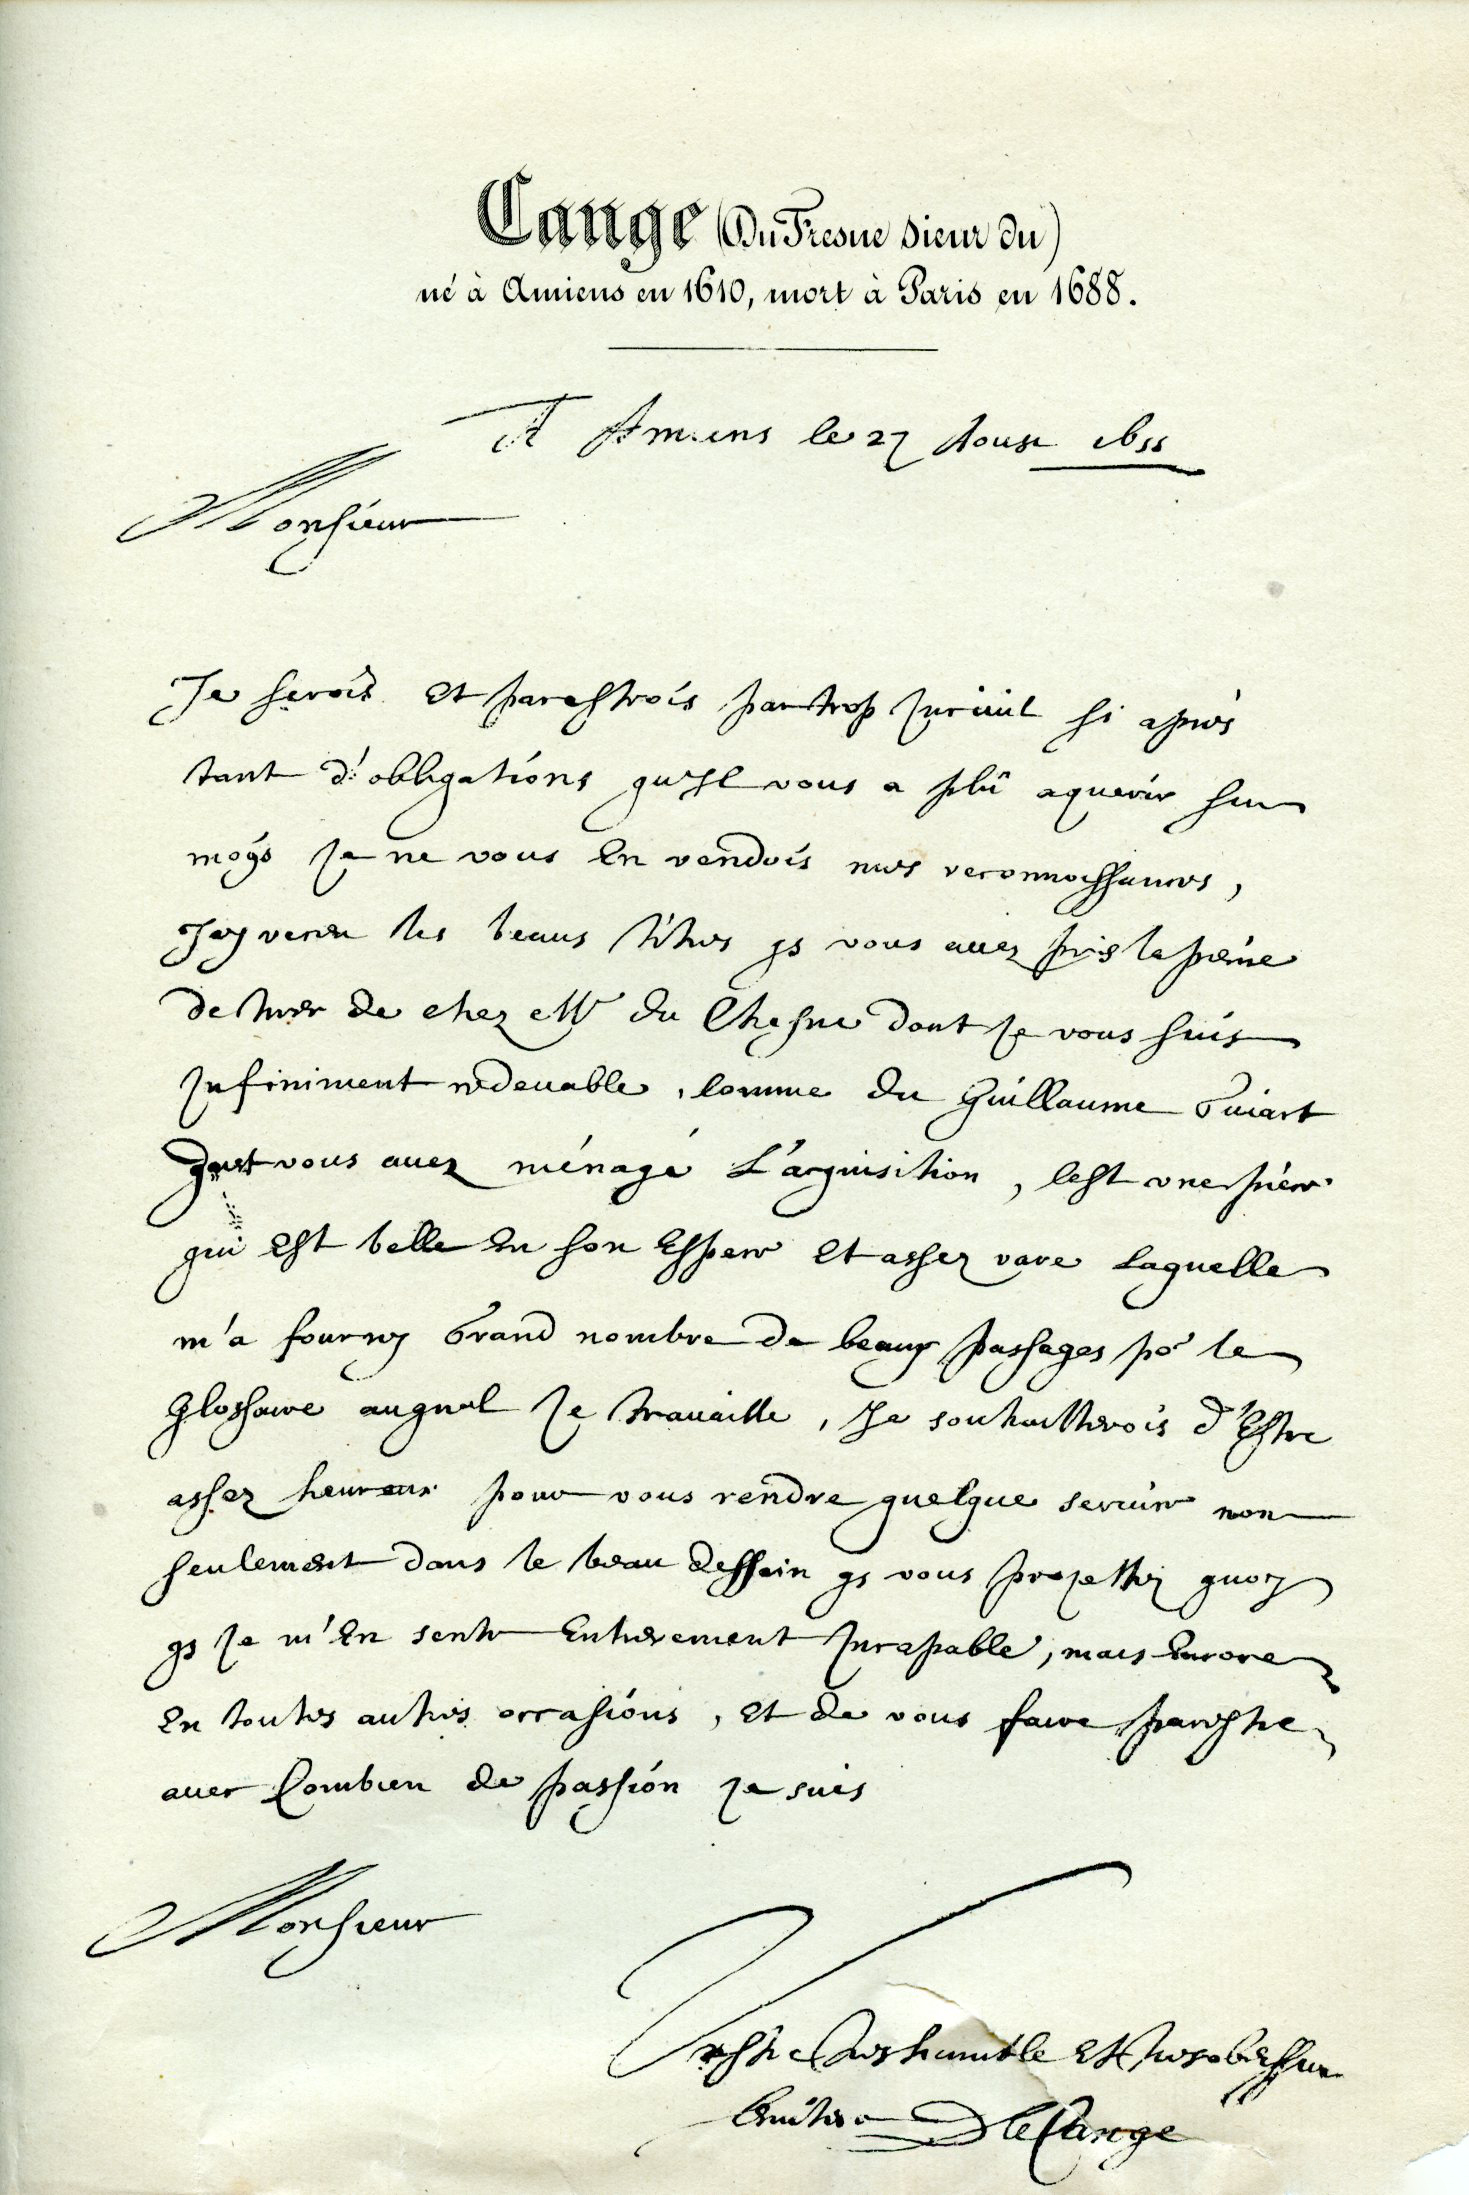 Cange (Du Fresne sieur du)
né à Amiens en 1610, mort à Paris en 1688.
A Amiens le 27 Aoust 1655
Monsieur
Je serois et parestrois par trop Inciuil si aprés
tant d'obligations qu'Il vous a plû aquerir sur
moy Je ne vous En rendois mes reconnoissances,
J'ay receu les beaus titres qs vous auez pris la peine
de tirer de chez Mr du Chesne dont Je vous suis
Infiniment redeuable, Comme du Guillaume Guiart
dont vous auez ménagé L'acquisition, C'est vne piece
qui Est belle En son Espece Et assez rare Laquelle
m'a fourny Grand nombre de beaux passages por le
Glossaire auquel Je trauaille, Je souhaitterois d'Estre
assez heureux pour vous rendre quelque seruice non
seulement dans le beau dessein qs vous projettez quoy
qs Je m'En sente Entierement Incapable, mais Encore
En toutes autres occasions, Et de vous faire parestre
auec Combien de passion Je suis
Monsieur
Vostre tres humble Et tres obeissant
seruiteur Du Cange